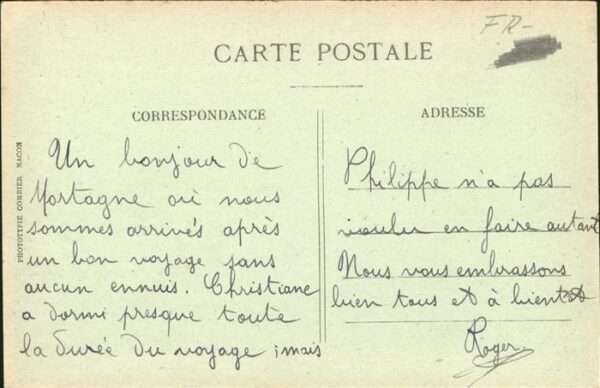 FR-
CARTE POSTALE
CORRESPONDANCE
Un bonjour de
Mortagne où nous
sommes arrivés après
un bon voyage sans
aucun ennuis. Christiane
a dormi presque toute
la durée du voyage ; mais
ADRESSE
Philippe n'a pas
voulu en faire autant
Nous vous embrassons
bien tous et à bientôt
Roger
PHOTOTYPIE COMBIER MACON